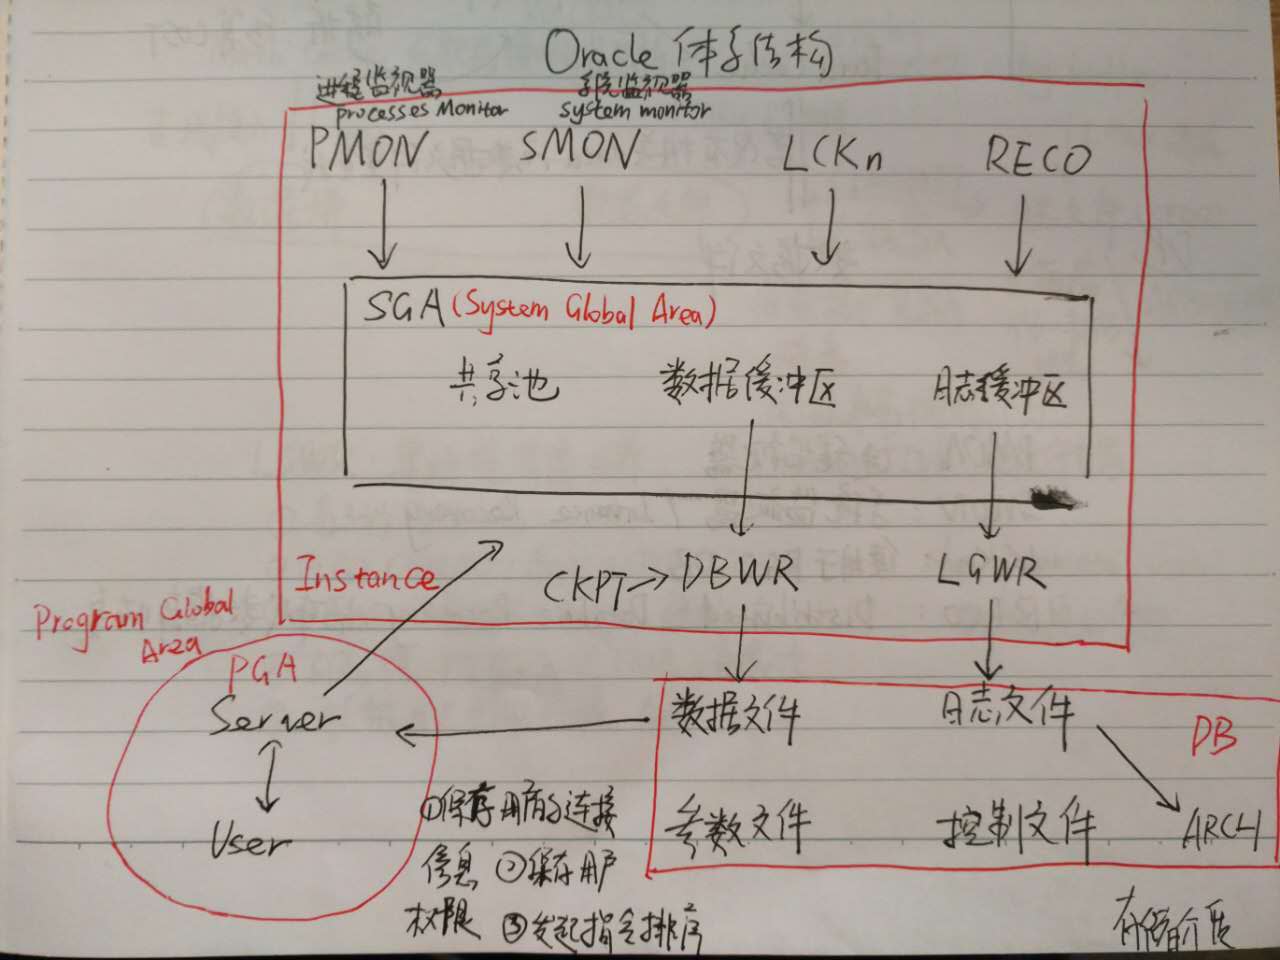 Oracle 体系结构
进程监视器 系统监视器
processes Monitor system monitor
PMON SMON LCKn RECO
SGA (System Global Area)
共享池 数据缓冲区 日志缓冲区
Instance CKPT DBWR LGWR
Program Global
Area
PGA
Server 数据文件 日志文件 DB
User 参数文件 控制文件 ARCH
①保存用户的连接
信息 ②保存用户
权限 ③发起指令排序
存储介质